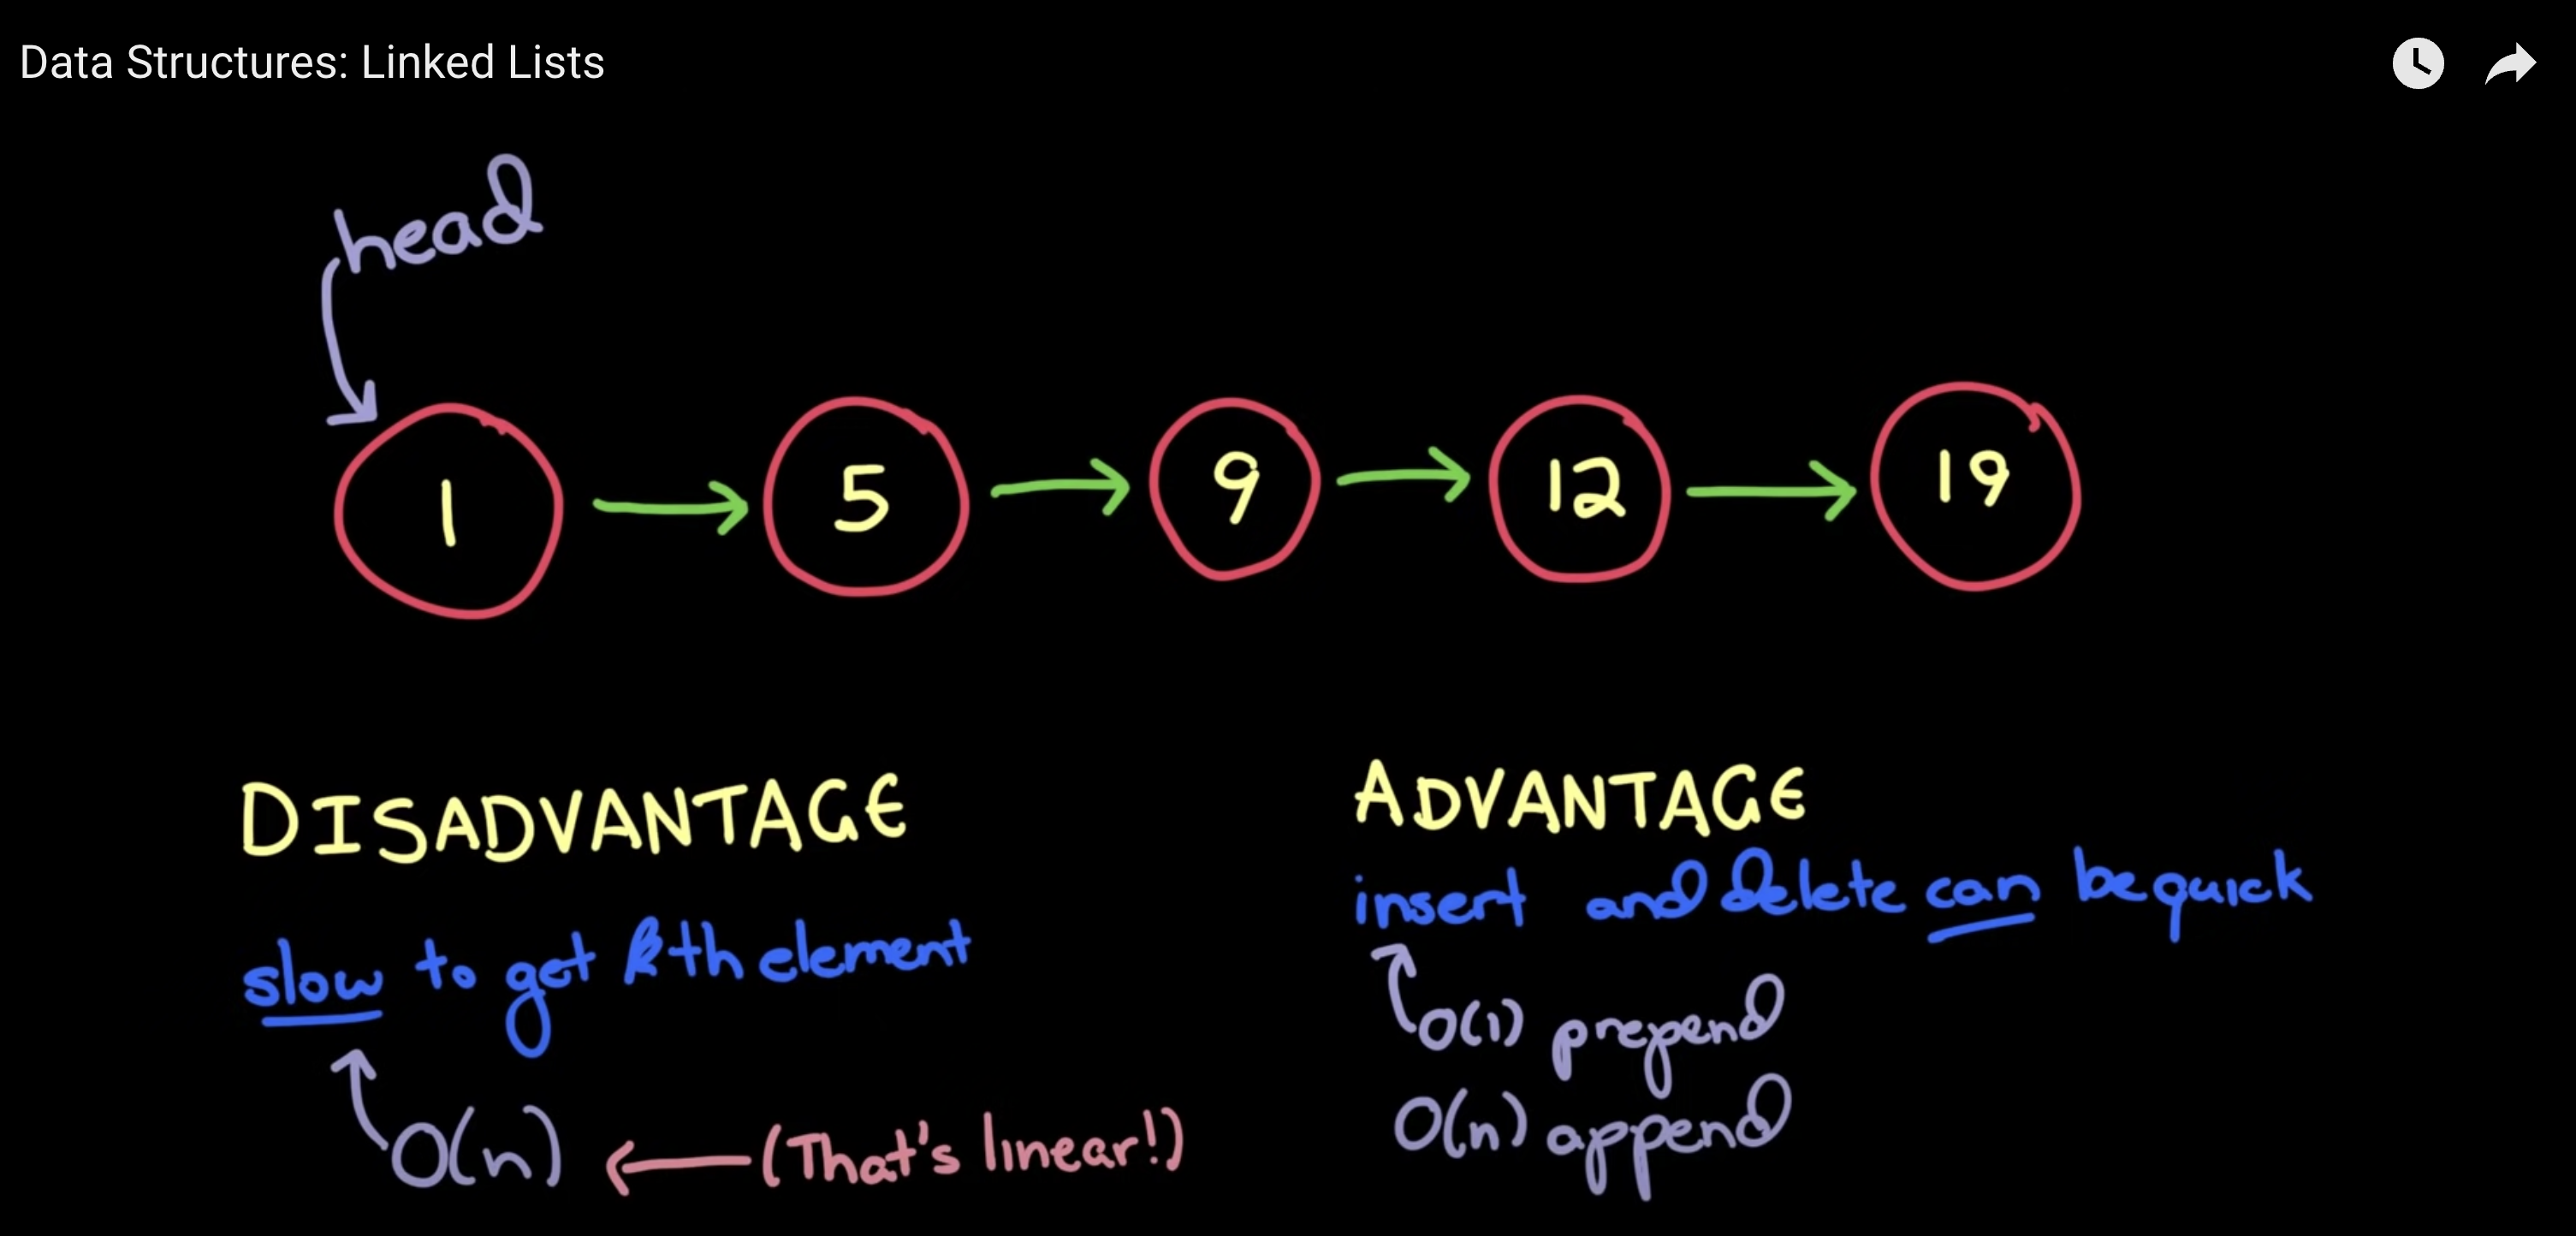 Data Structures: Linked Lists
head
1 5 9 12 19
DISADVANTAGE
slow to get kth element
O(n) (That's linear!)
ADVANTAGE
insert and delete can be quick
O(1) prepend
O(n) append